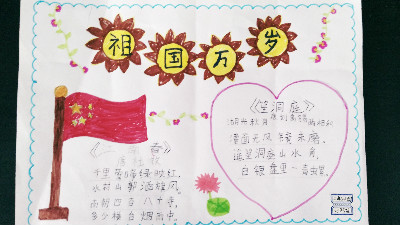 祖国万岁
《望洞庭》
湖光秋月两相和
潭面无风镜未磨,
遥望洞庭山水
白银盘里一青螺。
春》
千里莺啼绿映红,
水村山郭酒旗风,
南朝四百八十寺,
多少楼台烟雨中。